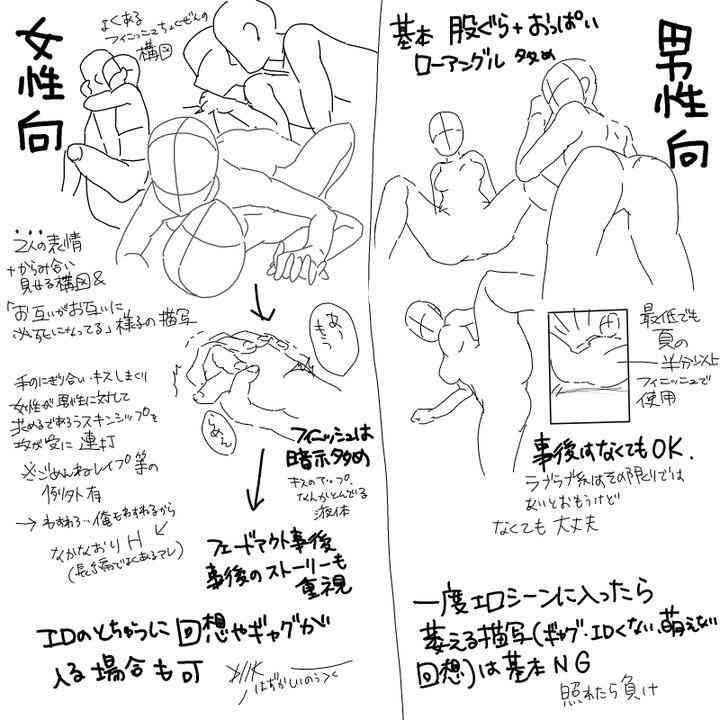 女性向
よくある
フィニッシュちょくぜんの
構図
…
2人の表情
+からみ合い
見せる構図&
「お互いがお互いに
必死になってる」様子の描写
手のにぎり合い キスしまくり
女性が男性に対して
求めるであろうスキンシップを
攻が受に 連打
※ごめんねレイプ等の
例外有
なかなおりH
(長編でよくあるアレ)
あっ
もうっ
らめぇ
フィニッシュは
暗示多め
キスのアップ、
なんかとんでる
液体
フェードアウト事後
事後のストーリーも
重視
エロのとちゅうに回想やギャグが
入る場合も可
はずかしいのう><
男性向
基本 股ぐら+おっぱい
ローアングル 多め
最低でも
頁の
半分以上
フィニッシュで
使用
事後はなくてもOK.
ラブラブ系はその限りでは
ないとおもうけど
なくても 大丈夫
一度エロシーンに入ったら
萎える描写(ギャグ・エロくない、萌えない
回想)は基本NG
照れたら負け